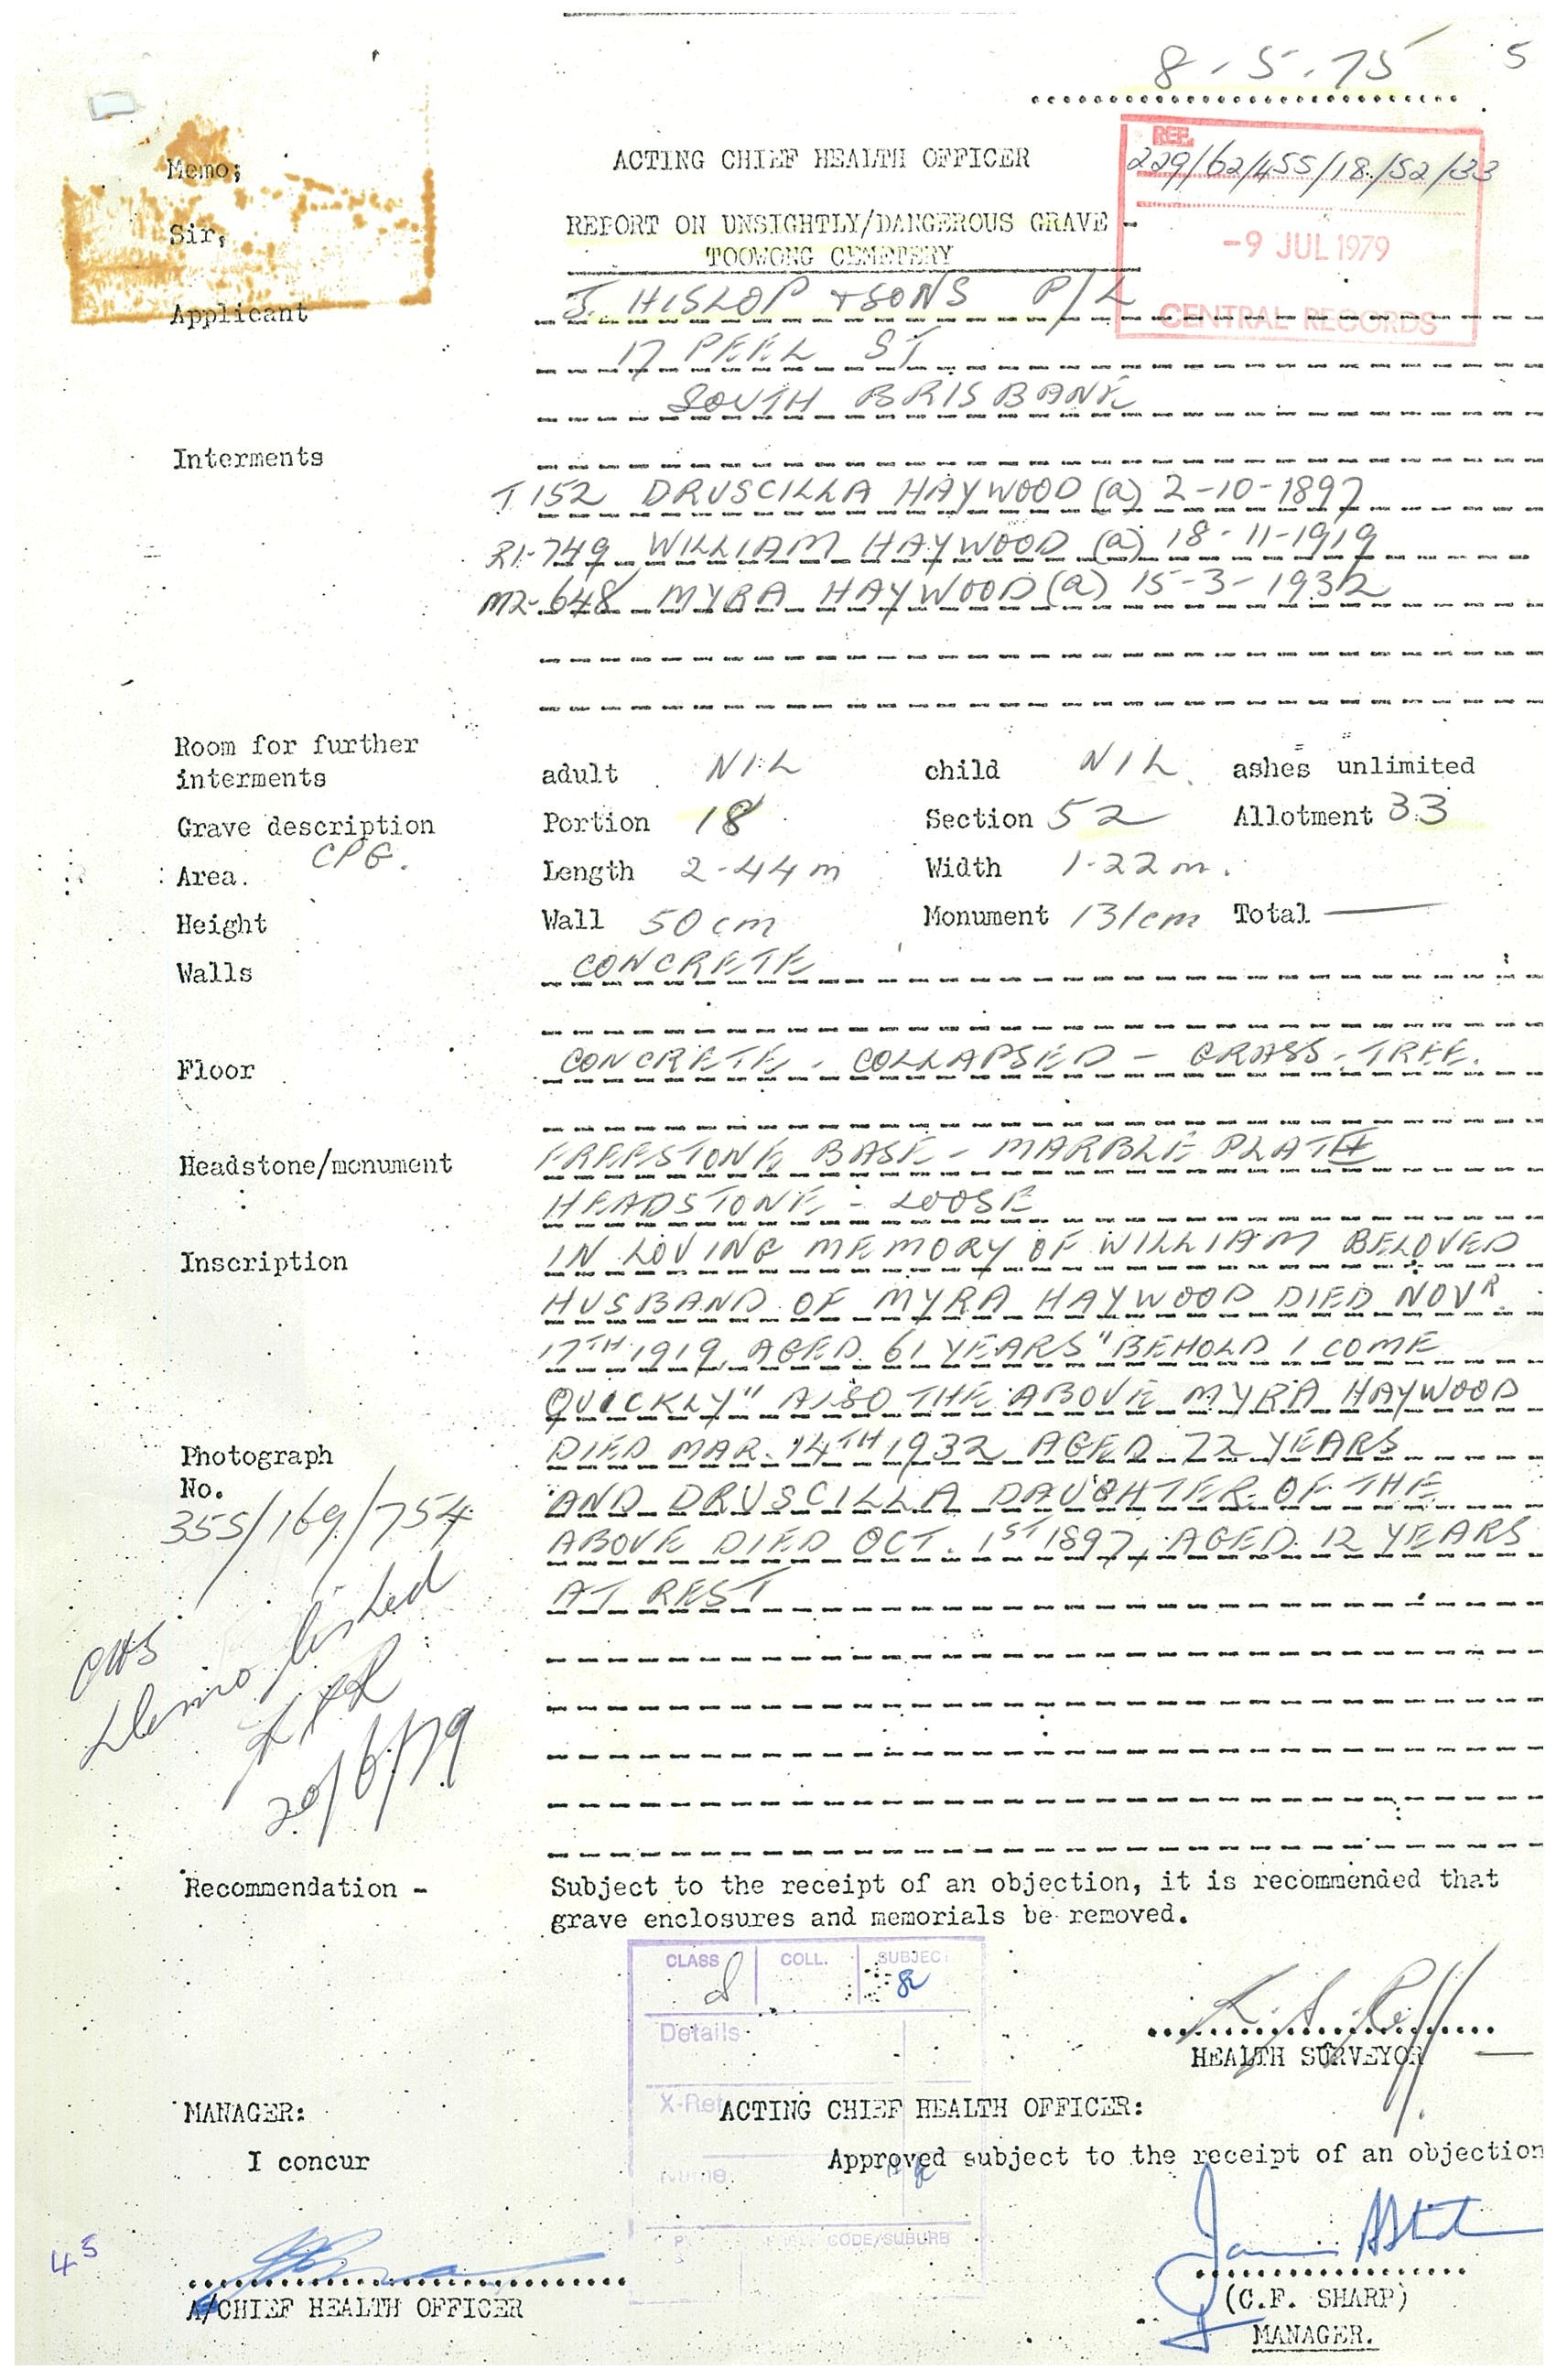 8-5-75 5
REF.
229/62/455/18/52/33
-9 JUL 1979
CENTRAL RECORDS
Memo;
Sir,
ACTING CHIEF HEALTH OFFICER
REPORT ON UNSIGHTLY/DANGEROUS GRAVE -
TOOWONG CEMETERY
Applicant J. HISLOP + SONS P/L
17 PEEL ST
SOUTH BRISBANE
Interments
T152 DRUSCILLA HAYWOOD (a) 2-10-1897
R1-749 WILLIAM HAYWOOD (a) 18-11-1919
M2-648 MYRA HAYWOOD (a) 15-3-1932
Room for further
interments adult NIL child NIL ashes unlimited
Grave description Portion 18 Section 52 Allotment 33
CPG.
Area. Length 2-44m Width 1-22m.
Height Wall 50cm Monument 131cm Total —
Walls CONCRETE
Floor CONCRETE - COLLAPSED - GRASS - TREE.
Headstone/monument FREESTONE BASE - MARBLE PLATE
HEADSTONE - LOOSE
Inscription IN LOVING MEMORY OF WILLIAM BELOVED
HUSBAND OF MYRA HAYWOOD DIED NOVR
17TH 1919 AGED 61 YEARS "BEHOLD I COME
QUICKLY" ALSO THE ABOVE MYRA HAYWOOD
Photograph DIED MAR. 14TH 1932 AGED 72 YEARS
No. AND DRUSCILLA DAUGHTER OF THE
355/169/754 ABOVE DIED OCT. 1ST 1897, AGED 12 YEARS
AT REST
Demolished
20/6/79
Recommendation - Subject to the receipt of an objection, it is recommended that
grave enclosures and memorials be removed.
CLASS COLL. SUBJECT
Details
X-Ref
Name
CODE/SUBURB
HEALTH SURVEYOR
MANAGER: ACTING CHIEF HEALTH OFFICER:
I concur Approved subject to the receipt of an objection
45
A/CHIEF HEALTH OFFICER
(C.F. SHARP)
MANAGER.